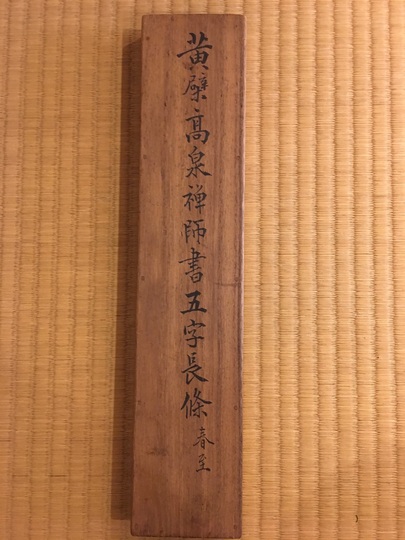 黄檗高泉禅師書五字長條 春至